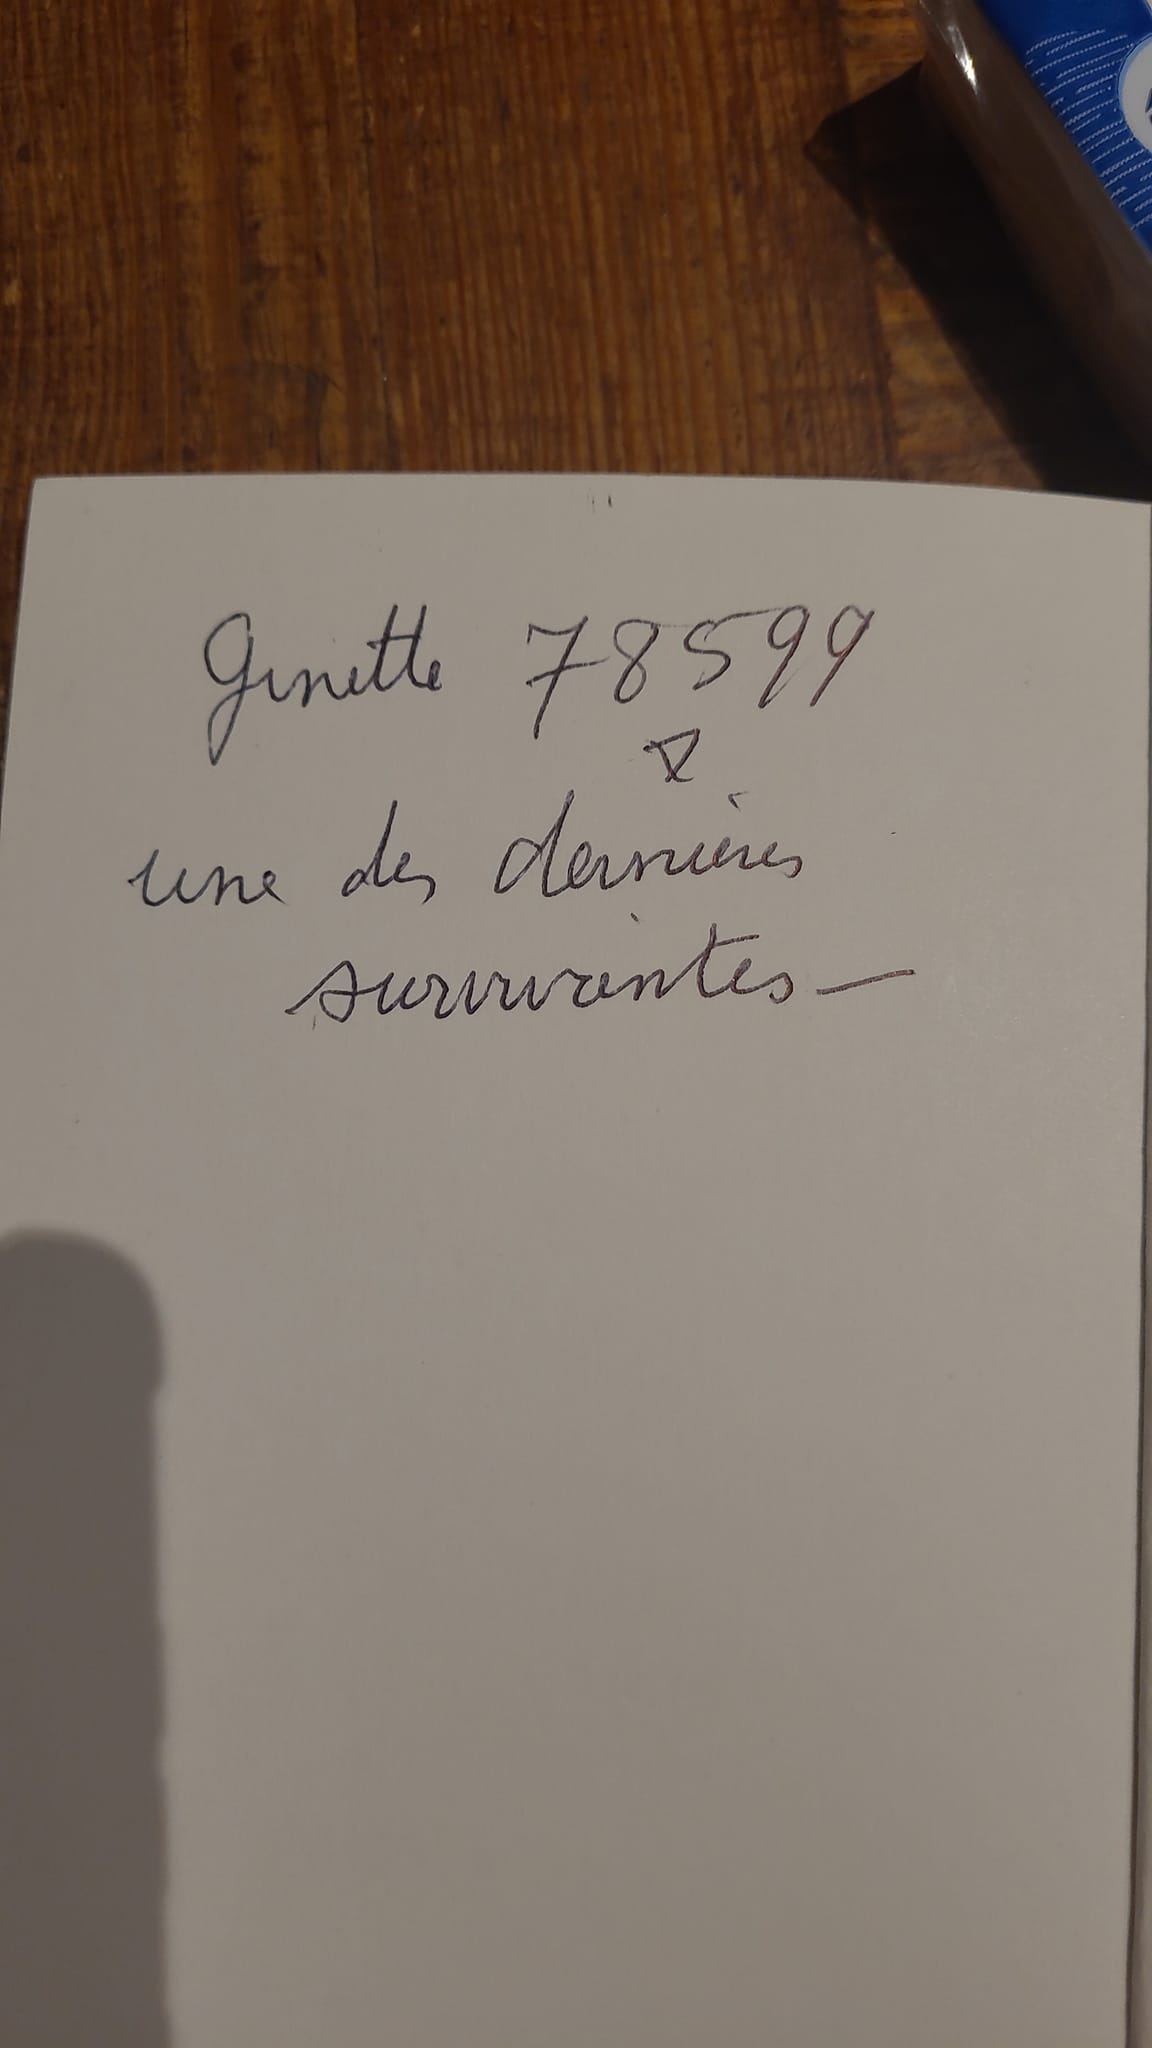 Ginette 78599
une des dernières
survivantes —